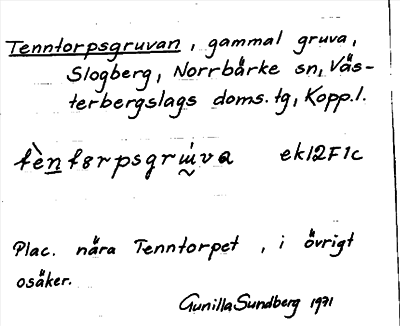 Tenntorpsgruvan, gammal gruva,
Slogberg, Norrbärke sn, Väs-
terbergslags doms. tg, Kopp.l.
ek12F1c
Plac. nära Tenntorpet, i övrigt
osäker.
Gunilla Sundberg 1971